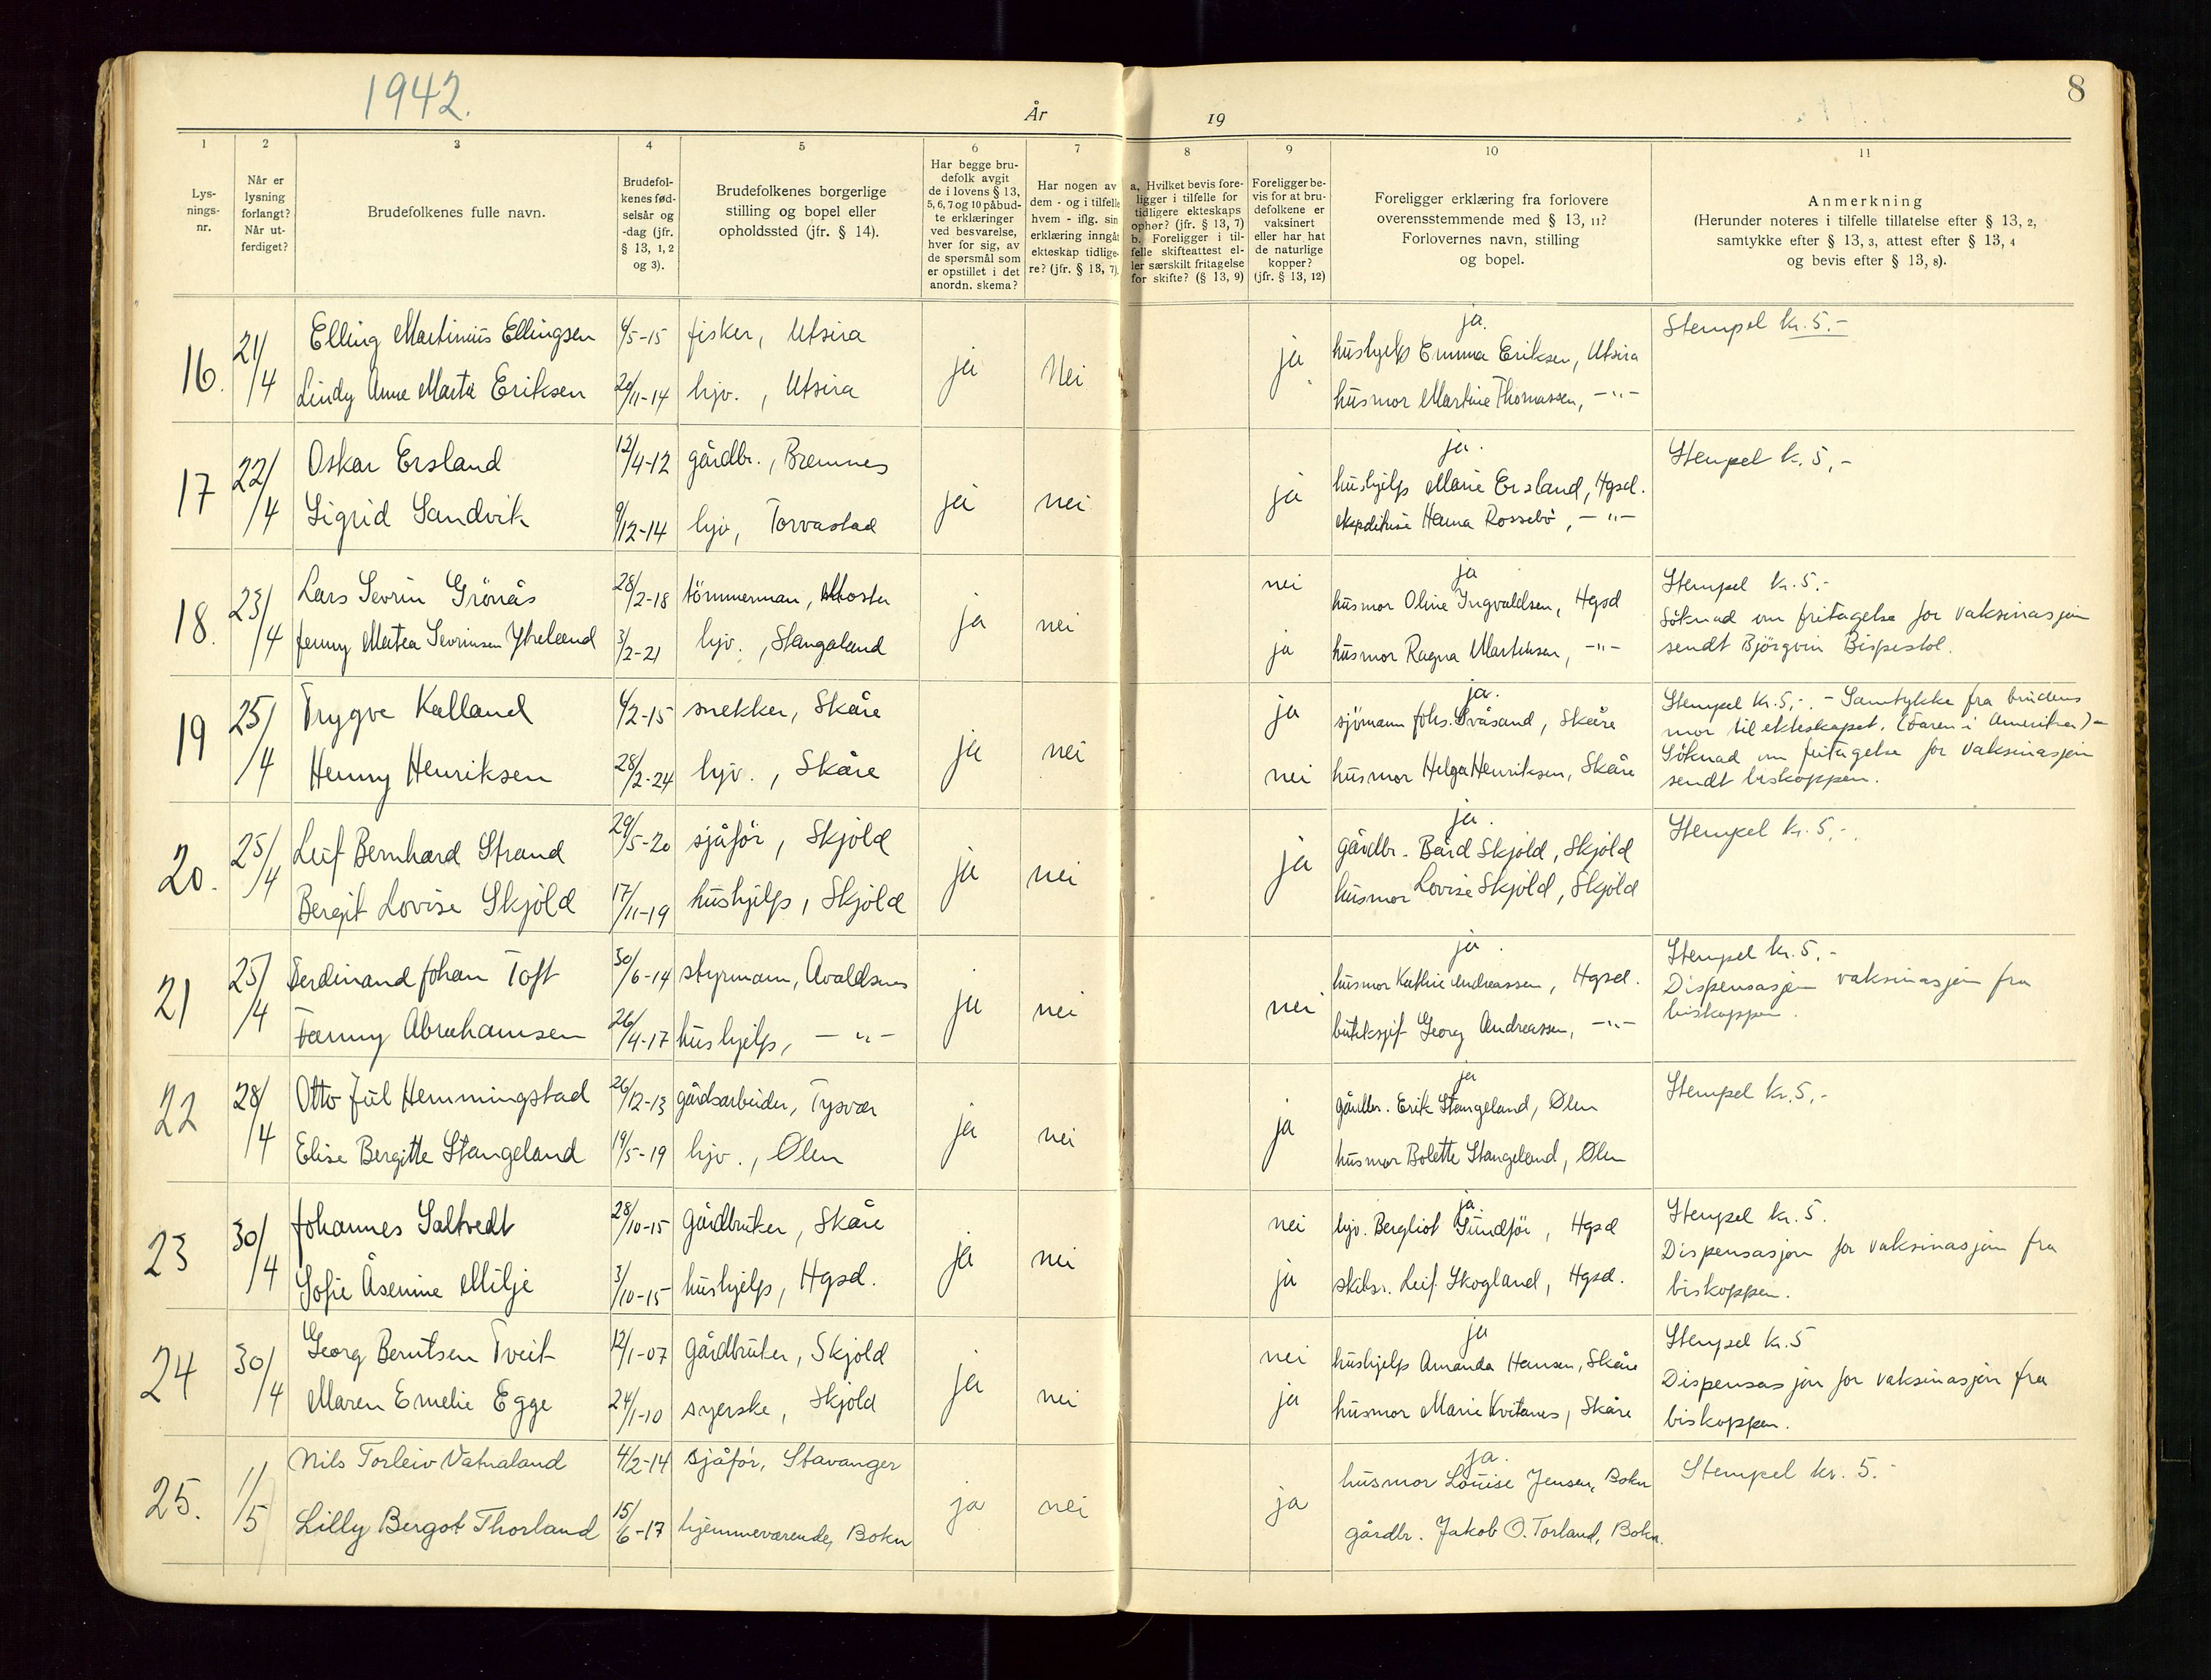 1942.
År
19
8
1
2
3
4
5
6
7
8
9
10
11
Lys-
nings-
nr.
Når er
lysning
forlangt?
Når ut-
ferdiget?
Brudefolkenes fulle navn.
Brudefol-
kenes fød-
selsår og
-dag (jfr.
§ 13, 1, 2
og 3).
Brudefolkenes borgerlige
stilling og bopel eller
opholdssted (jfr. § 14).
Har begge bru-
defolk avgit
de i lovens § 13,
5, 6, 7 og 10 påbud-
te erklæringer
ved besvarelse,
hver for sig, av
de spørsmål som
er opstillet i det
anordn. skema?
Har nogen av
dem - og i tilfelle
hvem - iflg. sin
erklæring inngåt
ekteskap tidlige-
re? (jfr. § 13, 7).
a. Hvilket bevis fore-
ligger i tilfelle for
tidligere ekteskaps
ophør? (jfr. § 13, 7)
b. Foreligger i til-
felle skifteattest el-
ler særskilt fritagelse
for skifte? (§ 13, 9)
Foreligger be-
vis for at bru-
defolkene er
vaksinert
eller har hat
de naturlige
kopper?
(jfr. § 13, 12)
Foreligger erklæring fra forlovere
overensstemmende med § 13, 11?
Forlovernes navn, stilling
og bopel.
Anmerkning
(Herunder noteres i tilfelle tillatelse efter § 13, 2,
samtykke efter § 13, 3, attest efter § 13, 4
og bevis efter § 13, 8).
16. 21/4 Elling Martinius Ellingsen 6/5-15 fisker, Utsira
Lindy Anne Marta Eriksen 20/11-14 hjv., Utsira
ja Nei ja
ja.
hushjelp Emma Eriksen, Utsira
husmor Martine Thomassen, -"-
Stempel kr. 5.-
17 22/4 Oskar Ersland 12/4-12 gårdbr., Bremnes
Sigrid Sandvik 9/12-14 hjv, Torvastad
ja nei ja
ja.
hushjelp Marie Ersland, Hgsd.
Hanna Rossebö, -"-
Stempel kr. 5,-
18. 23/4 Lars Sevrin Grönås 28/2-18 tömmerman, Moster
Jenny Matea Sevrinsen Ytreland 3/2-21 hjv., Stangaland
ja nei nei
ja
ja
husmor Oline Ingvaldsen, Hgsd
husmor Ragna Martinsen, -"-
Stempel kr. 5.-
Söknad om fritagelse for vaksinasjon
sendt Björgvin Bispestol.
19 25/4 Trygve Kalland 6/2-15 snekker, Skåre
Henny Henriksen 28/2-24 hjv., Skåre
ja nei ja
nei
ja.
sjömann Johs. Svåsand, Skåre
husmor Helga Henriksen, Skåre
Stempel Kr. 5,-. - Samtykke fra brudens
mor til ekteskapet. (Faren i Amerika) -
Söknad om fritagelse for vaksinasjon
sendt biskoppen.
20. 25/4 Leif Bernhard Strand 29/5-20 sjåför, Skjold
Bergit Lovise Skjold 17/11-19 hushjelp, Skjold
ja nei ja
ja.
gårdbr. Bård Skjold, Skjold
husmor Lovise Skjold, Skjold
Stempel kr. 5.-
21 25/4 Ferdinand Johan Toft 30/6-14 styrmann, Avaldsnes
Fanny Abrahamsen 26/4-17 hushjelp, -"-
ja nei nei
ja.
husmor Kathrie Andreassen, Hgsd.
Georg Andreassen, -"-
Stempel kr. 5.-
Dispensasjon vaksinasjon fra
biskoppen.
22 28/4 Otto Jul Hemmingstad 26/12-13 gårdsarbeider, Tysvær
Elise Bergitte Stangeland 19/5-19 hjv., Ølen
ja nei ja
ja
gårdbr. Erik Stangeland, Ølen
husmor Bolette Stangeland, Ølen
Stempel kr. 5,-
23 30/4 Johannes Saltvedt 28/10-15 gårdbruker, Skåre
Sofie Åsenine Milje 3/10-15 hushjelp, Hgsd.
ja nei nei
ja
ja.
hjv. Bergliot Sundför, Hgsd
skibsr. Leif Skogland, Hgsd.
Stempel kr. 5.
Dispensasjon for vaksinasjon fra
biskoppen.
24 30/4 Georg Berntsen Tveit 12/1-07 gårdbruker, Skjold
Maren Emelie Egge 24/1-10 syerske, Skjold
ja nei nei
ja
ja
hushjelp Amanda Hansen, Skåre
husmor Marie Kvitanes, Skåre
Stempel kr. 5
Dispensasjon for vaksinasjon fra
biskoppen.
25. 1/5 Nils Torleiv Vatnaland 4/2-14 sjåför, Stavanger
Lilly Bergot Thorland 15/6-17 hjemmeværende, Bokn
ja nei ja
ja.
husmor Louise Jensen, Bokn
gårdbr. Jakob O. Torland, Bokn.
Stempel kr. 5.-